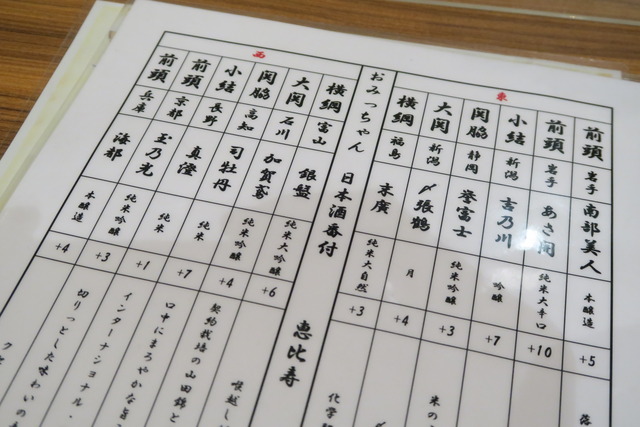 東
前頭 岩手 南部美人 本醸造 +5
前頭 岩手 あさ開 純米大辛口 +10
小結 新潟 吉乃川 吟醸 +7
関脇 静岡 誉富士 純米吟醸 +3 米の
大関 新潟 〆張鶴 月 +4
横綱 福島 末廣 純米大自然 +3 化学
おみっちゃん 日本酒番付 恵比寿
西
横綱 富山 銀盤 純米大吟醸 +6 喉越し
大関 石川 加賀鳶 純米吟醸 +4 契約栽培の山田錦と
関脇 高知 司牡丹 純米 +7 口中にまろやかな旨
小結 長野 真澄 純米 +1 インターナショナル・
前頭 京都 玉乃光 純米吟醸 +3 切りっとした味わいの
前頭 兵庫 海部 本醸造 +4 クセ